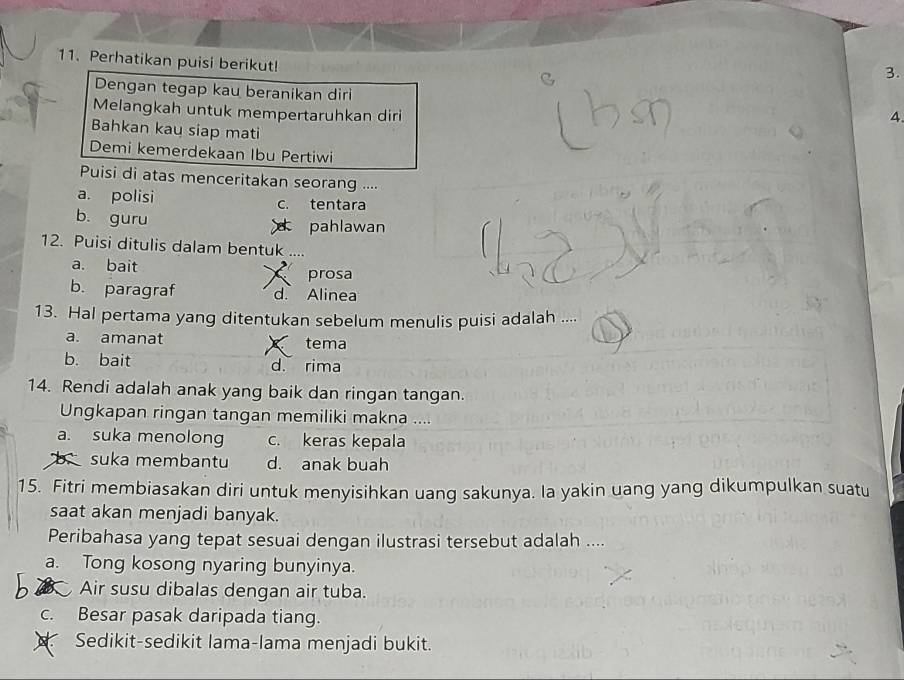 11. Perhatikan puisi berikut!
Dengan tegap kau beranikan diri
Melangkah untuk mempertaruhkan diri
Bahkan kau siap mati
Demi kemerdekaan Ibu Pertiwi
Puisi di atas menceritakan seorang ....
a. polisi c. tentara
b. guru pahlawan
12. Puisi ditulis dalam bentuk ....
a. bait prosa
b. paragraf d. Alinea
13. Hal pertama yang ditentukan sebelum menulis puisi adalah ....
a. amanat tema
b. bait d. rima
14. Rendi adalah anak yang baik dan ringan tangan.
Ungkapan ringan tangan memiliki makna ....
a. suka menolong c. keras kepala
suka membantu d. anak buah
15. Fitri membiasakan diri untuk menyisihkan uang sakunya. Ia yakin uang yang dikumpulkan suatu
saat akan menjadi banyak.
Peribahasa yang tepat sesuai dengan ilustrasi tersebut adalah ....
a. Tong kosong nyaring bunyinya.
b Air susu dibalas dengan air tuba.
c. Besar pasak daripada tiang.
Sedikit-sedikit lama-lama menjadi bukit.
3.
4.